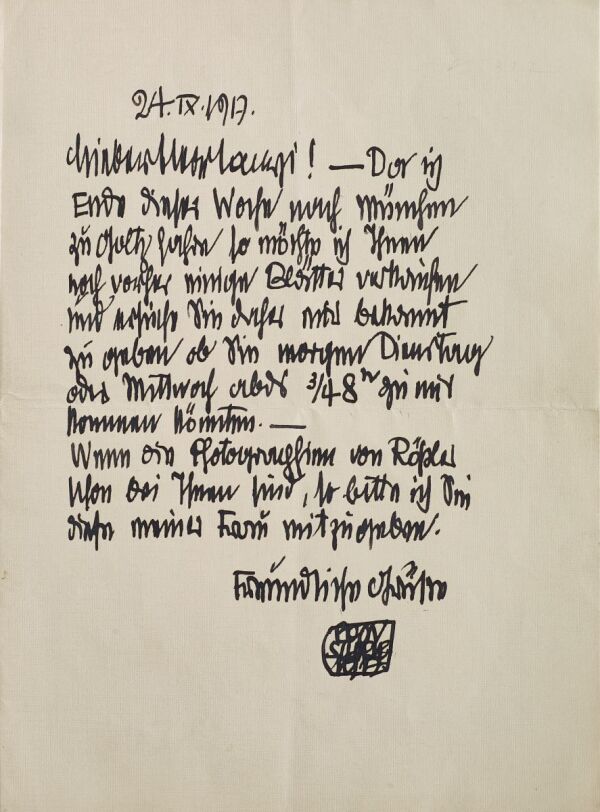 24.IX.1917.
Lieber Herr Lanyi! — Da ich
Ende dieser Woche nach München
zu Goltz fahre so möchte ich Ihnen
noch vorher einige Blätter verkaufen
und ersuche Sie daher mir bekannt
zu geben ob Sie morgen Dienstag
oder Mittwoch abds ¾8ʰ zu mir
kommen könnten. —
Wenn die Photographien von Rößler
schon bei Ihnen sind, so bitte ich Sie
diese meiner Frau mitzugeben.
Freundliche Grüße
EGON
SCHIELE
1917.